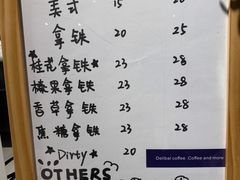 美式 15 20
拿铁 20 25
★桂花拿铁★ 23 28
榛果拿铁 23 28
香草拿铁 23 28
焦糖拿铁 23 28
★Dirty★ 20
Delibal coffee. Coffee and more
OTHERS